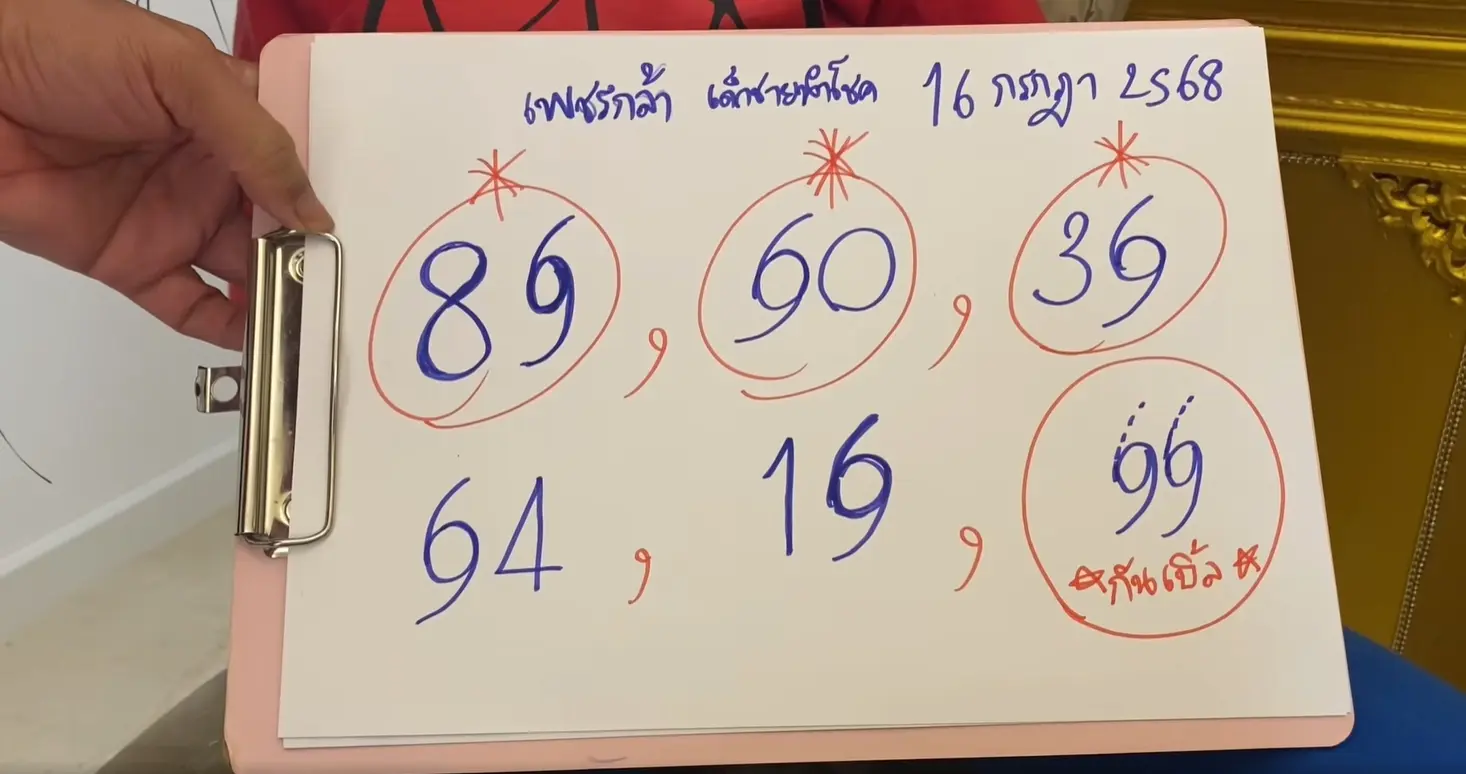 เพชรกล้า เด็กชายนำโชค 16 กรกฎา 2568
89 , 90 , 39
94 , 19 , 99
กันเบิ้ล